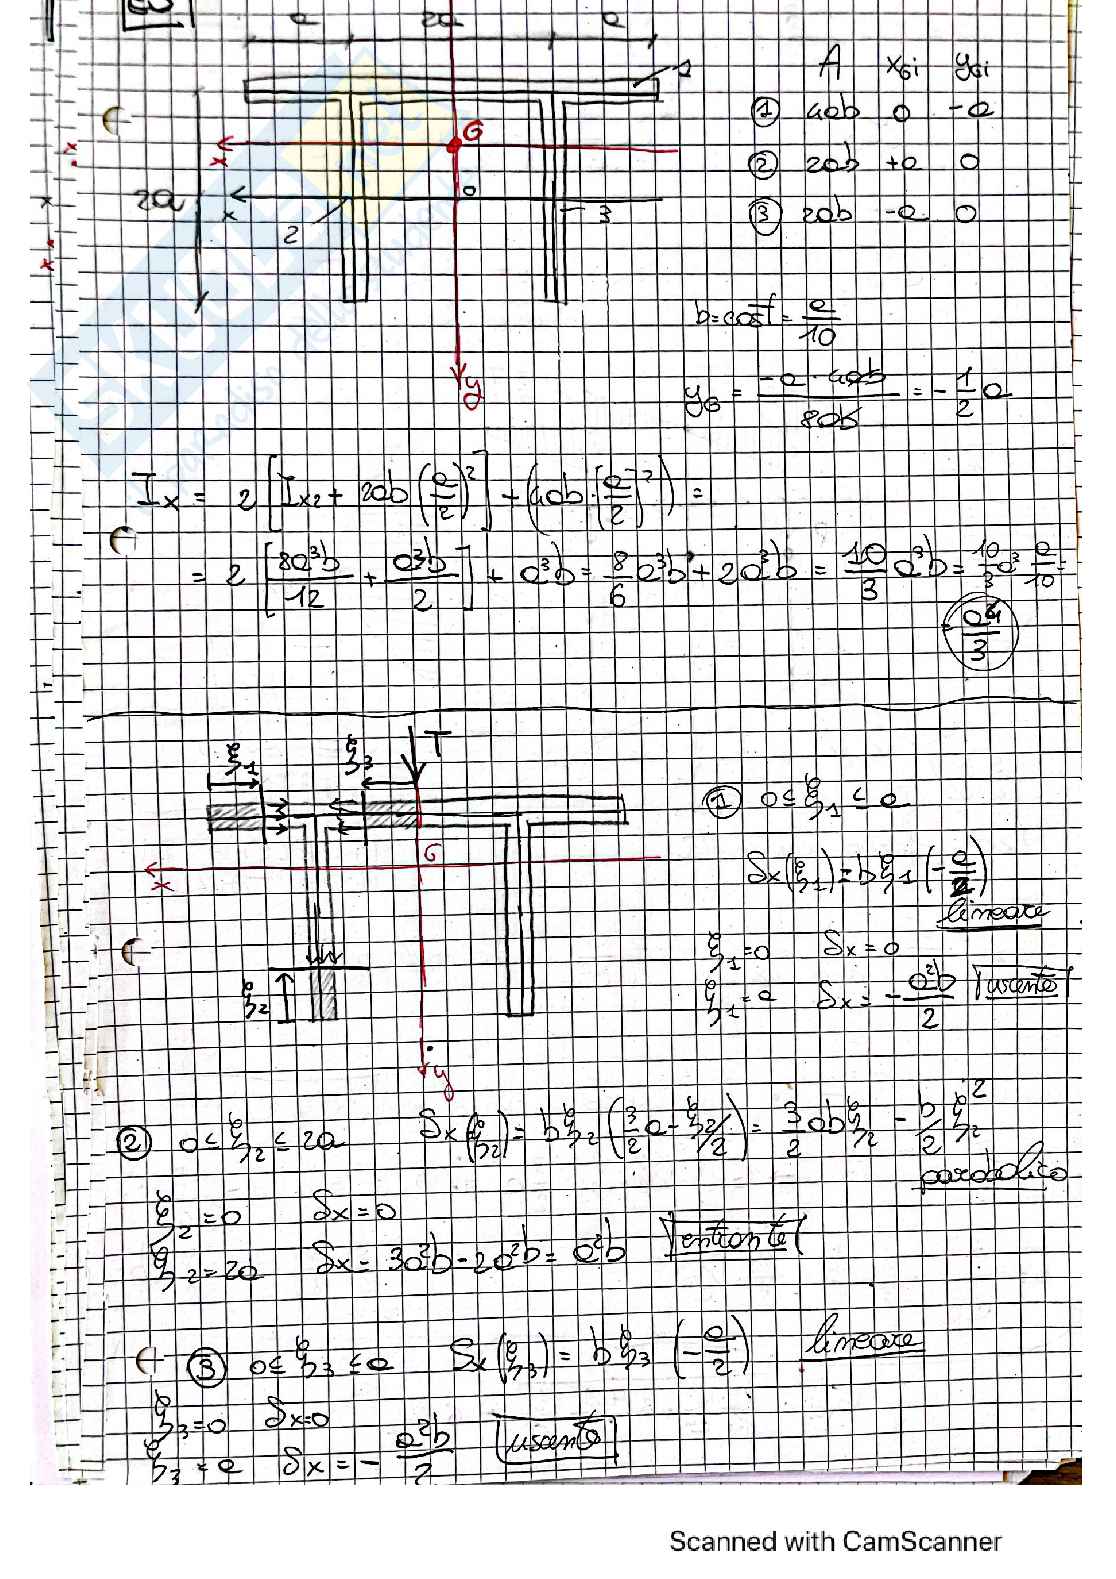 a 2a a
1
A xGi yGi
① 4ab 0 -a
② 2ab +a 0
③ 2ab -a 0
G
x
2a
x
0
2
3
y
b = cost = a/10
yG = (-a · 4ab)/(8ab) = -1/2 a
Ix = 2 [Ix2 + 2ab (a/2)²] + (4ab · [a/2]²) =
= 2 [8a³b/12 + a³b/2] + a³b = 8/6 a³b + 2a³b = 10/3 a³b = 10/3 a³ a/10 =
= a⁴/3
T
ξ1 ξ3
G
x
ξ2
y
① 0 ≤ ξ1 ≤ a
Sx(ξ1) = bξ1 (-a/2)
lineare
ξ1 = 0 Sx = 0
ξ1 = a Sx = - a²b/2 uscente
② 0 ≤ ξ2 ≤ 2a Sx(ξ2) = bξ2 (3/2 a - ξ2/2) = 3/2 abξ2 - b/2 ξ2²
parabolico
ξ2 = 0 Sx = 0
ξ2 = 2a Sx = 3a²b - 2a²b = a²b entrante
③ 0 ≤ ξ3 ≤ a Sx(ξ3) = bξ3 (-a/2) lineare
ξ3 = 0 Sx = 0
ξ3 = a Sx = - a²b/2 uscente
Scanned with CamScanner